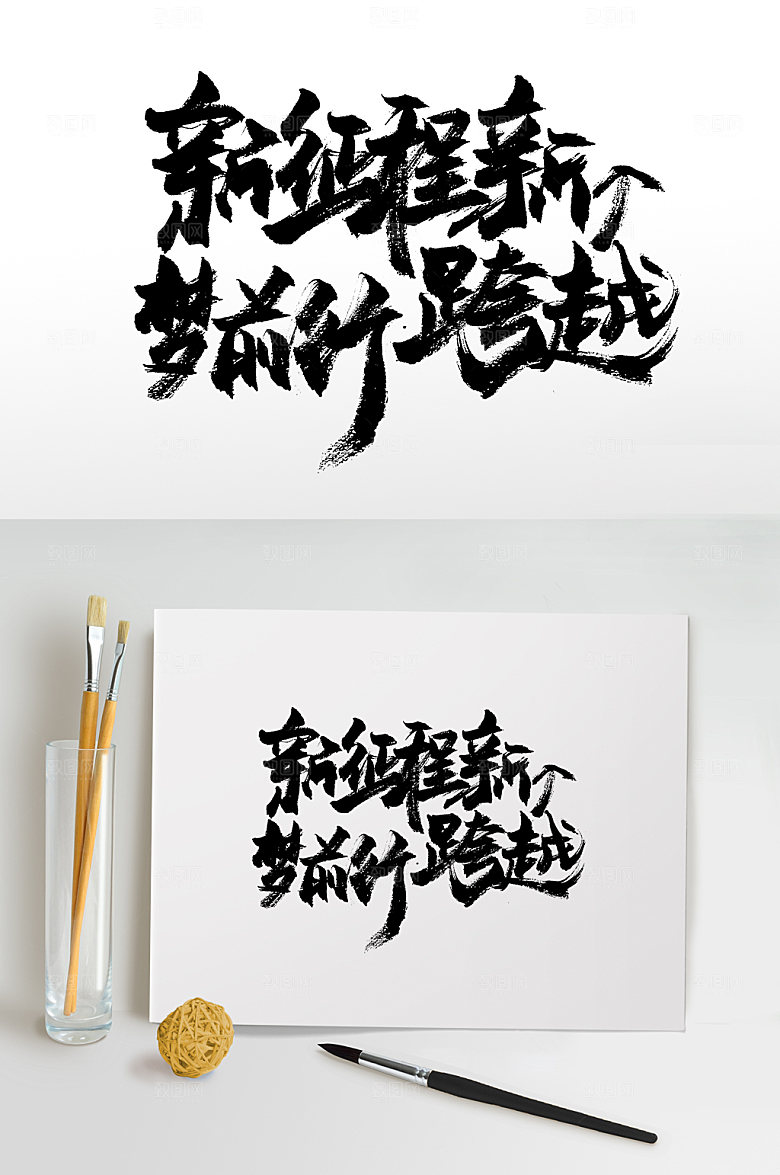 新征程新个
梦前行跨越
新征程新个
梦前行跨越